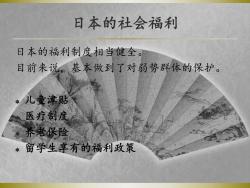 日本的社会福利
日本的福利制度相当健全。
目前来说，基本做到了对弱势群体的保护。
儿童津贴
医疗制度
养老保险
留学生享有的福利政策